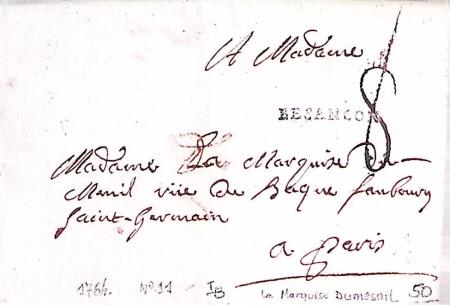 A Madame
BESANCON
8
Madame La Marquise du
Menil rüe de Baque faubourg
Saint-Germain
a paris
1764. N°11 IB La Marquise Dumesnil 50